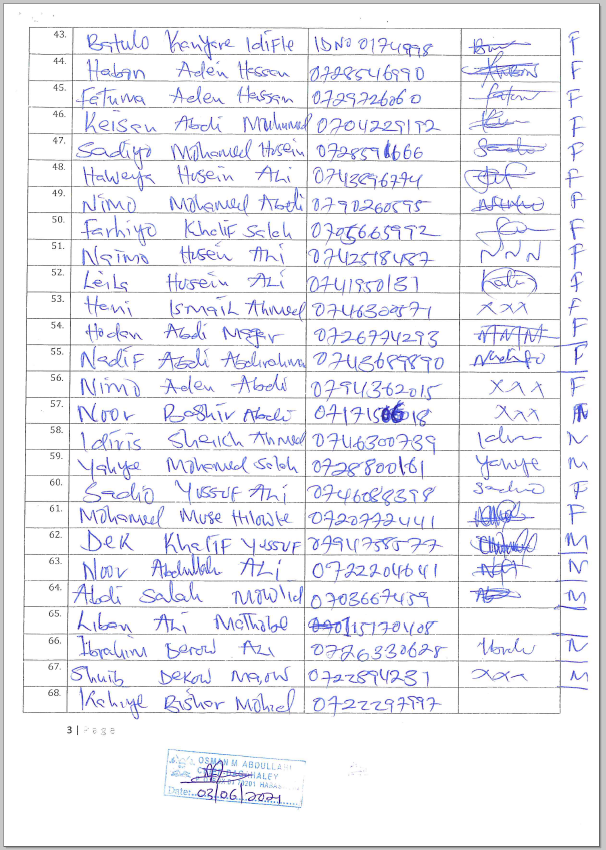 43. Batulo Kanyare Idifle IDNO 0174998 F
44. Haban Aden Hassan 0728546990 F
45. Fatuma Aden Hassan 0729726060 F
46. Keisan Abdi Muhumed 0704229192 F
47. Sadiyo Mohamed Husein F
48. Haweya Husein ALi 0743896774 F
49. Nimo Mohamed Abdi 0790260595 F
50. Farhiyo Khalif Salah 0705665992 F
51. Naimo Husen ALi 0742518487 NNN F
52. Leila Husein ALi 0741950131 F
53. Heni Ismail Ahmed 0746300571 xxx F
54. Hodan Abdi Magar 0726774293 F
55. Nadif Abdi Abdirahman 0743689890 F
56. Nimo Aden Abdi 0794362015 xxx F
57. Noor Bashir Abdi xxx
58. Idiris Sheikh Ahmed 0746300739
59. Yahye Mohamed Salah 0728800161 Yahye M
60. Sadio Yussuf ALi 0746088398 Sadio F
61. Mohamed Muse Hilowle 0720772441 F
62. Dek Khalif Yussuf 0794758577 M
63. Noor Abdullahi ALi 0722204641
64. Abdi Salah Mowlid 0703667459 M
65. Liban ALi 0115170408
66. Ibrahim Derow ALi 0726330628
67. Shuib Derow 0722894231 xxx M
68. Kahiye Bishar 0722297997
3 | Page
OSMAN M ABDULLAHI
Date: 03/06/2021